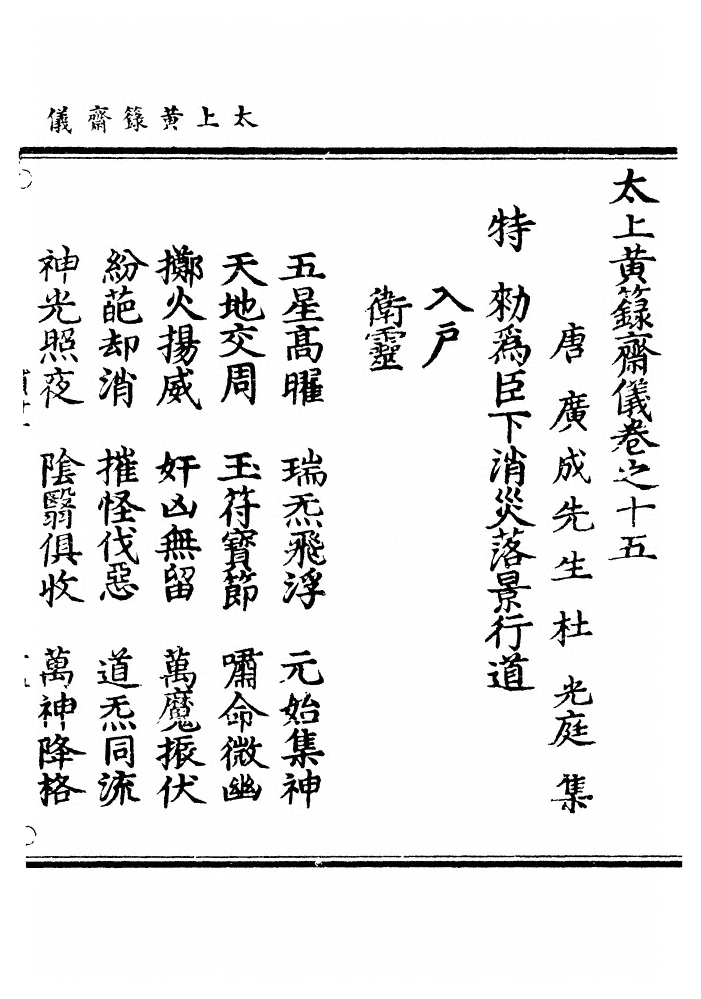 太上黃籙齋儀
太上黃籙齋儀卷之十五
唐廣成先生杜光庭集
特勑爲臣下消災落景行道
入戶
衛靈
五星高曜 瑞炁飛浮 元始集神
天地交周 玉符寶節 嘯命微幽
擲火揚威 奸凶無留 萬魔振伏
紛葩却消 摧怪伐惡 道炁同流
神光照夜 陰翳俱收 萬神降格